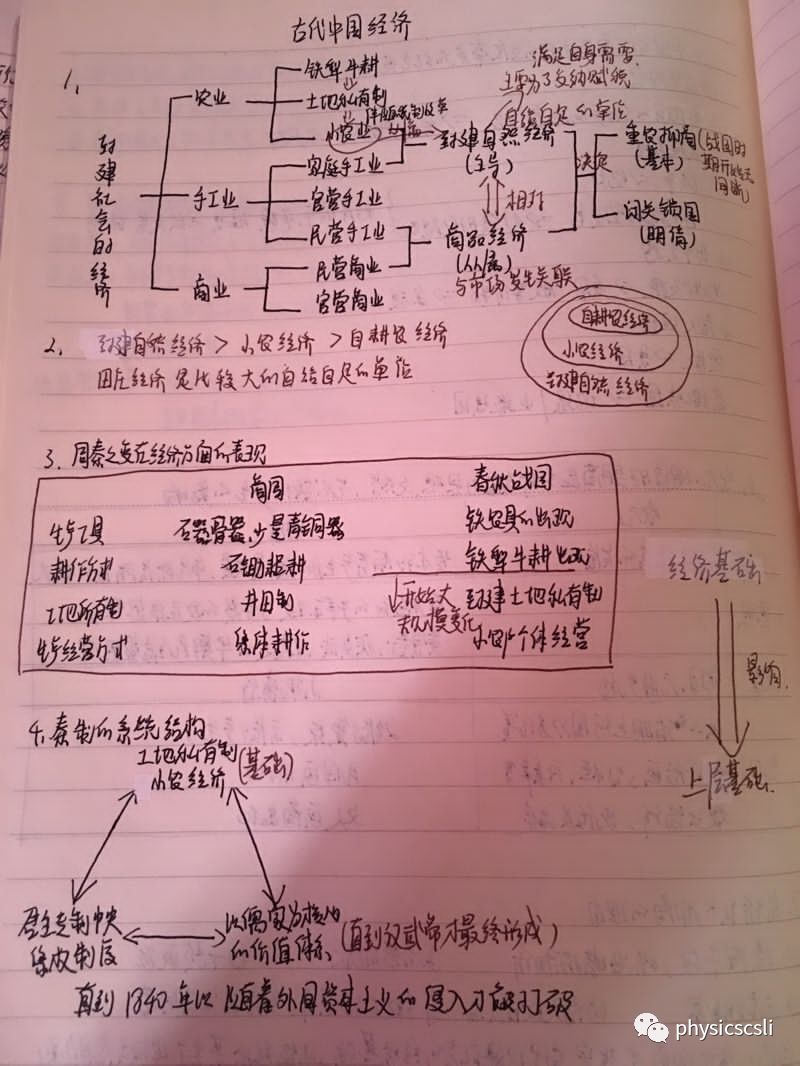 古代中国经济
1、
封建社会的经济
农业
铁犁牛耕
土地私有制
小农业
手工业
家庭手工业
官营手工业
民营手工业
商业
民营商业
官营商业
满足自身需要
主要为了交纳赋税
自给自足的单位
封建自然经济
(主导)
相对
商品经济
与市场发生关联
决定
重农抑商
(基本)
(战国时期开始
闭关锁国
(明清)
2、封建自然经济 > 小农经济 > 自耕农经济
田庄经济是比较大的自给自足的单位
自耕农经济
小农经济
封建自然经济
3、周秦之变在经济方面的表现
商周 春秋战国
生产工具 石器骨器,少量青铜器 铁农具的出现
耕作方式 石锄耜耕 铁犁牛耕出现
土地所有制 井田制 封建土地私有制
开始大规模变化
生产经营方式 集体耕作 小农个体经营
经济基础
影响
上层基础
4、秦制的系统结构
土地私有制
小农经济
(基础)
君主专制中央
集权制度
以儒家为核心
的价值体系
(直到汉武帝才最终形成)
直到1840年以 随着外国资本主义的侵入才被打破
physicscsli